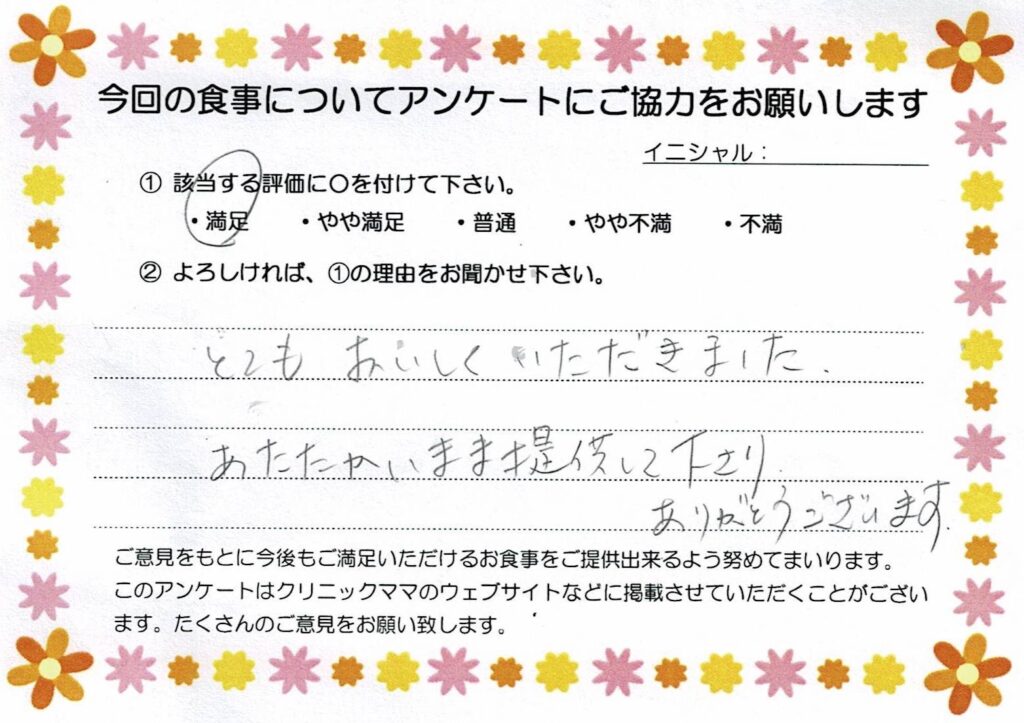 今回の食事についてアンケートにご協力をお願いします
イニシャル：
① 該当する評価に〇を付けて下さい。
・満足 ・やや満足 ・普通 ・やや不満 ・不満
② よろしければ、①の理由をお聞かせ下さい。
とても おいしく いただきました.
あたたかいまま提供して下さり
ありがとうございます.
ご意見をもとに今後もご満足いただけるお食事をご提供出来るよう努めてまいります。
このアンケートはクリニックママのウェブサイトなどに掲載させていただくことがござい
ます。たくさんのご意見をお願い致します。